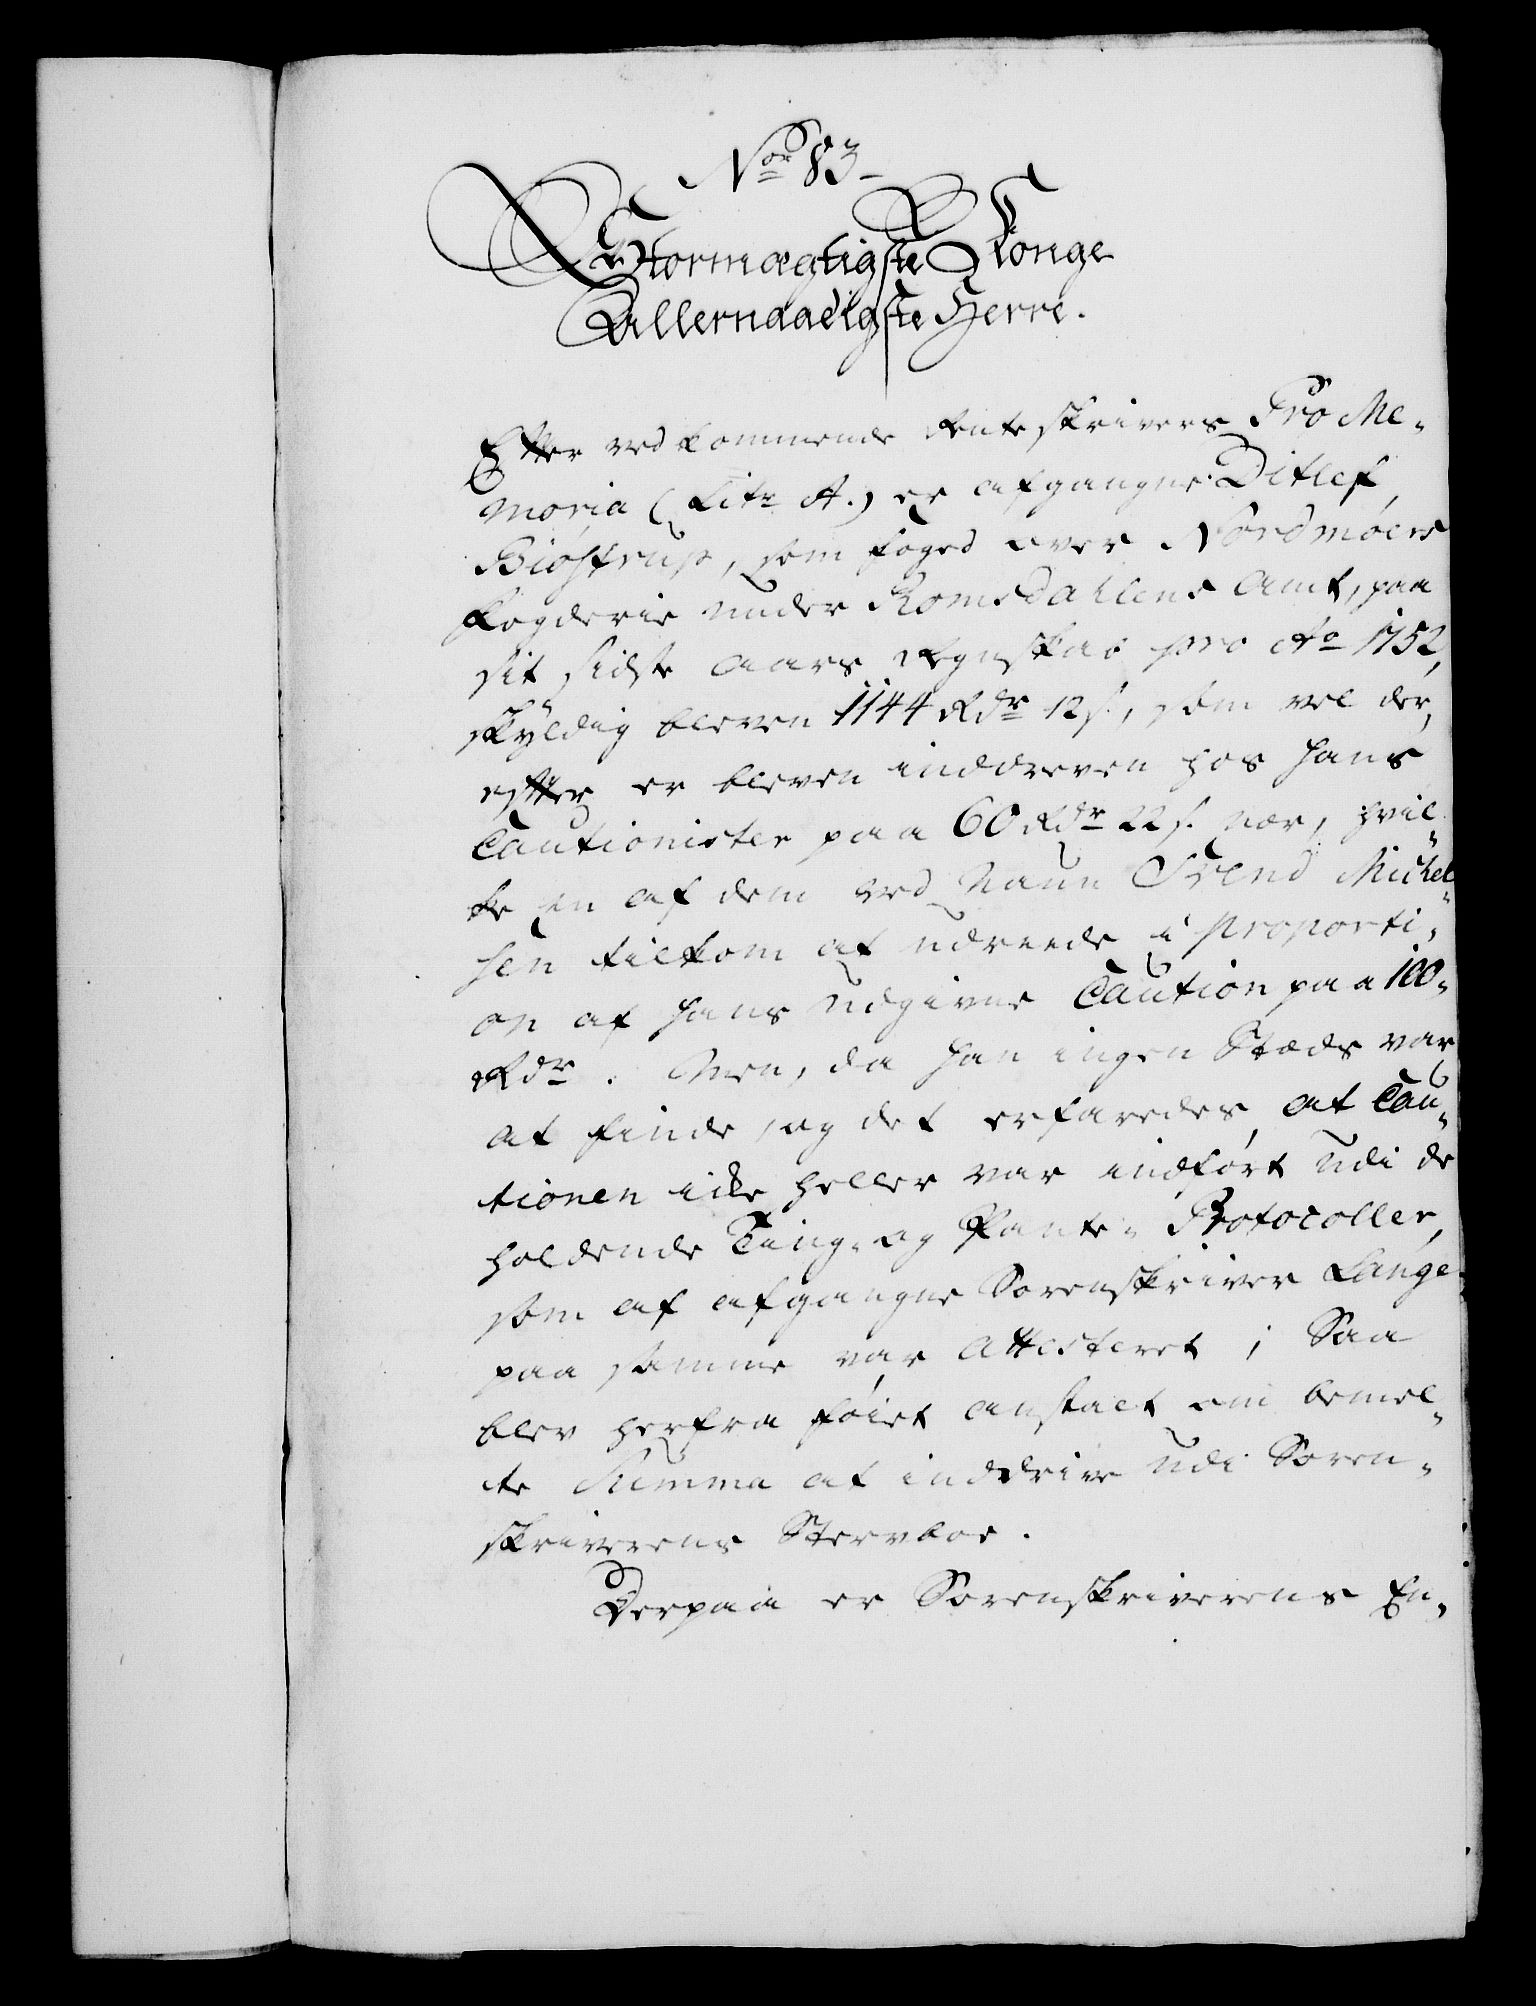 No 83-
Stormægtigste Konge
Allernaadigste Herre.
Efter vedkommende Renteskrivers Pro Me-
moria (Litr A.) er afgangne Ditlef
Biöstrup, som foged over Nordmöers
fogderie under Romsdahlens Amt, paa
sit sidste Aars Regnskab pro Ao 1752,
skyldig bleven 1144 Rdr 12 s., som vel der,
efter er bleven inddreven hos hans
Cautionister paa 60 Rdr 22 s. nær, hvil-
ke en af dem ved Navn Svend Michel-
sen tilkom at udreede i proporti-
on af hans udgivne Caution paa 100-
Rdr. Men, da han ingen Stæds var
at finde, og det erfaredes, at Cau-
tionen ikke heller var indfört udi de
holdende Ting- og Pante- Protocoller,
som af afgangne Sorenskriver Lange
paa samme var Attesteret; Saa
blev herfra föiet anstalt om bemel-
te Summa at inddrive udi Soren-
skriverens Stervboe.
Derpaa er Sorenskriverens En-